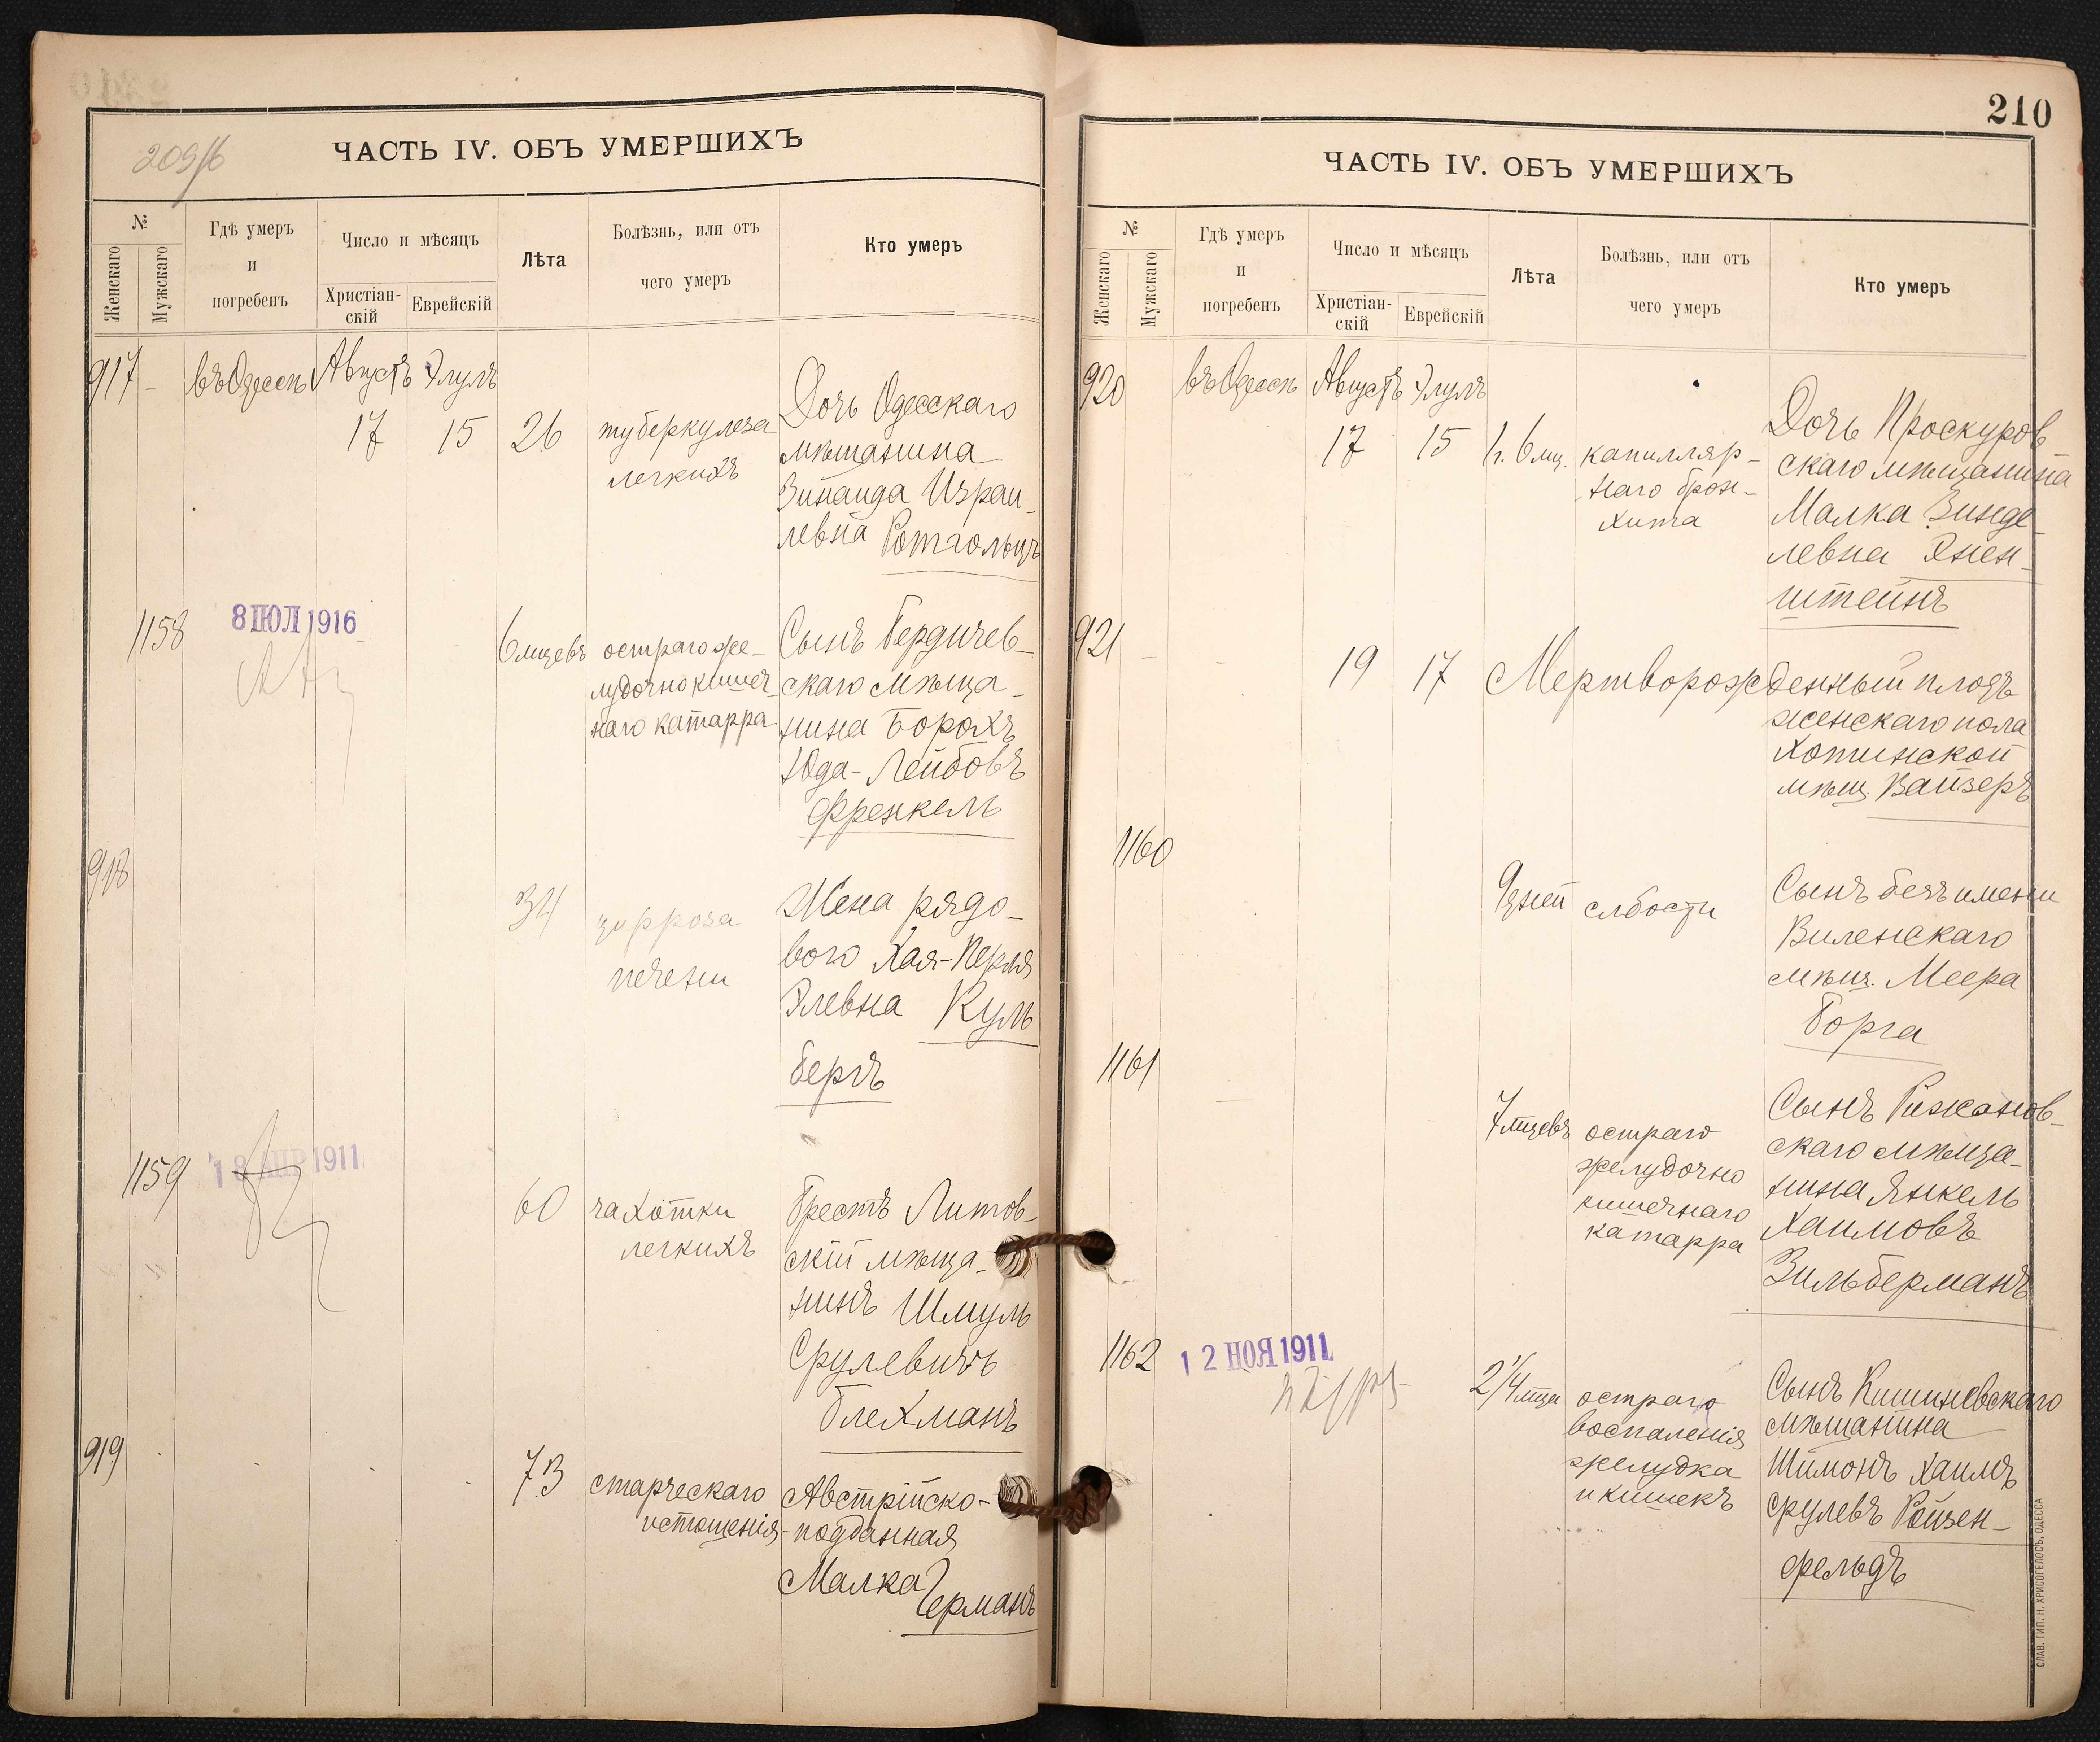 209/б
ЧАСТЬ IV. ОБЪ УМЕРШИХЪ
№
Женскаго
Мужскаго
Гдѣ умеръ
и
погребенъ
Число и мѣсяцъ
Христіан-
скій
Еврейскій
Лѣта
Болѣзнь, или отъ
чего умеръ
Кто умеръ
917 - въ Одессѣ Августъ Элулъ
17 15 26
туберкулеза
легкихъ
Дочь Одесскаго
мѣщанина
Зинаида Израи-
левна Ротгольцъ
1158
8 ІЮЛ 1916
6 мцевъ
остраго же-
лудочно кишеч-
наго катарра
Сынъ Бердичев-
скаго мѣща-
нина Борохъ
Юда-Лейбовъ
Френкель
918
34
цирроза
печени
Жена рядо-
вого Хая-Перля
Элевна Куль
бергъ
1159
18 АПР 1911
60
чахотки
легкихъ
Брестъ Литов-
скій мѣща-
нинъ Шмуль
Срулевичъ
Блехманъ
919
73
старческаго
истощенія
Австрійско-
подданная
Малка Германъ
210
ЧАСТЬ IV. ОБЪ УМЕРШИХЪ
№
Женскаго
Мужскаго
Гдѣ умеръ
и
погребенъ
Число и мѣсяцъ
Христіан-
скій
Еврейскій
Лѣта
Болѣзнь, или отъ
чего умеръ
Кто умеръ
920 въ Одессѣ Августъ Элулъ
17 15 1 г. 6 мц.
капилляр-
наго брон-
хита
Дочь Проскуров
скаго мѣщанина
Малка Зинде
левна Энен-
штейнъ
921 - -
19 17 Мертворожденный плодъ
женскаго пола
Хотинской
мѣщ. Вайзеръ
1160
9 дней слбости
Сынъ безъ имени
Виленскаго
мѣщ. Меера
Борга
1161
7 мцевъ
остраго
желудочно
кишечнаго
катарра
Сынъ
скаго мѣща-
нина Янкель
Хаимовъ
Зильберманъ
1162
12 НОЯ 1911
2 1/4 мца
остраго
воспаленія
желудка
и кишекъ
Сынъ Кишиневскаго
мѣщанина
Шимонъ Хаимъ
Срулевъ Ройзен-
фельдъ
СЛАВ. ТИП. Н. ХРИСОГЕЛОСЪ, ОДЕССА